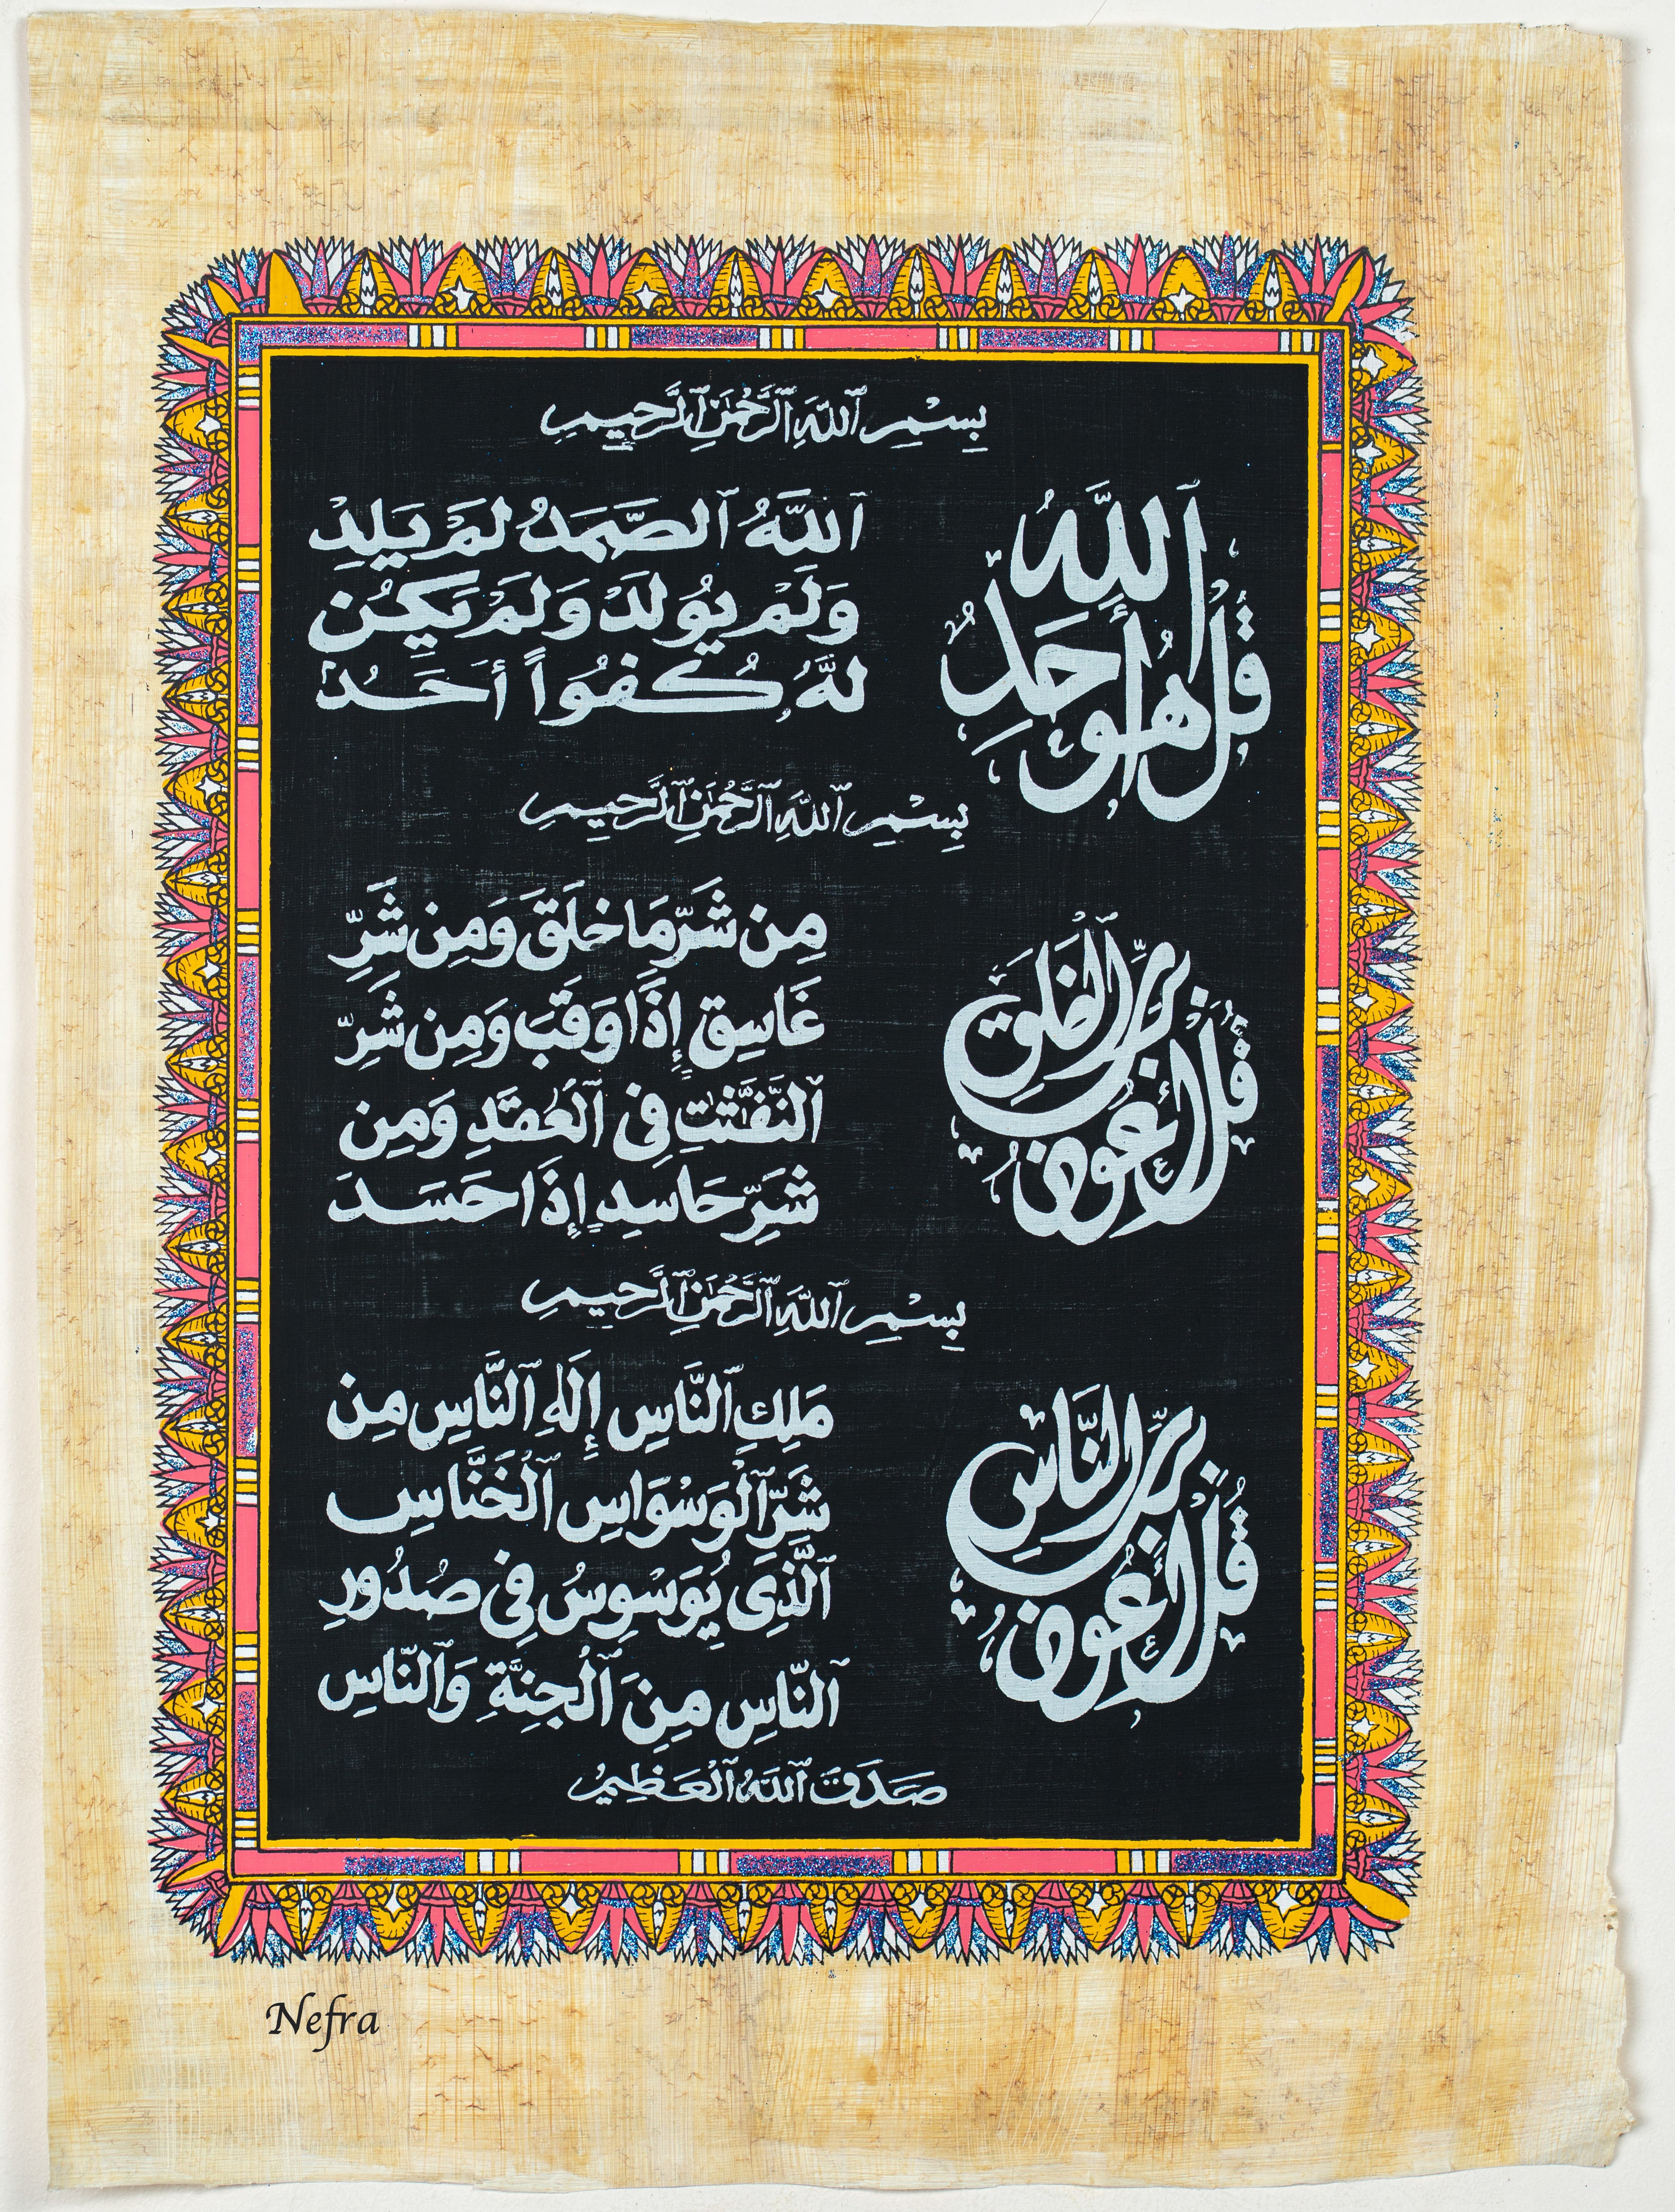 بِسْمِ ٱللَّهِ ٱلرَّحْمَٰنِ ٱلرَّحِيمِ
قُلْ هُوَ ٱللَّهُ أَحَدٌ
ٱللَّهُ ٱلصَّمَدُ لَمْ يَلِدْ
وَلَمْ يُولَدْ وَلَمْ يَكُن
لَّهُ كُفُوًا أَحَدٌ
بِسْمِ ٱللَّهِ ٱلرَّحْمَٰنِ ٱلرَّحِيمِ
قُلْ أَعُوذُ بِرَبِّ الْفَلَقِ
مِن شَرِّ مَا خَلَقَ وَمِن شَرِّ
غَاسِقٍ إِذَا وَقَبَ وَمِن شَرِّ
ٱلنَّفَّٰثَٰتِ فِى ٱلْعُقَدِ وَمِن
شَرِّ حَاسِدٍ إِذَا حَسَدَ
بِسْمِ ٱللَّهِ ٱلرَّحْمَٰنِ ٱلرَّحِيمِ
قُلْ أَعُوذُ بِرَبِّ النَّاسِ
مَلِكِ ٱلنَّاسِ إِلَٰهِ ٱلنَّاسِ مِن
شَرِّ ٱلْوَسْوَاسِ ٱلْخَنَّاسِ
ٱلَّذِى يُوَسْوِسُ فِى صُدُورِ
ٱلنَّاسِ مِنَ ٱلْجِنَّةِ وَٱلنَّاسِ
صَدَقَ ٱللَّهُ ٱلْعَظِيمُ
Nefra